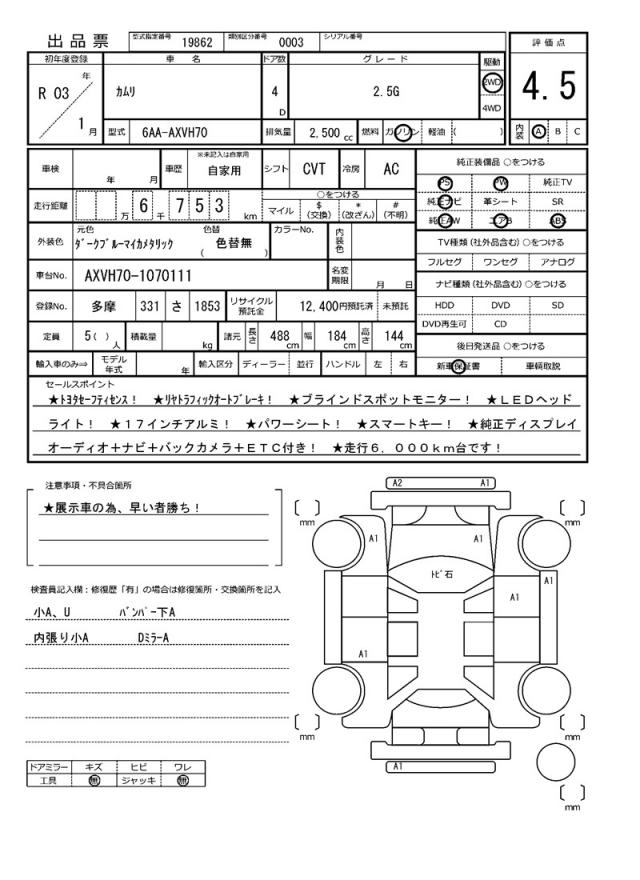 出品票 型式指定番号 19862 類別区分番号 0003 シリアル番号
評価点
4.5
内装 A B C
初年度登録 車名 ドア数 グレード 駆動
R 03 年 1 月 カムリ 4 D 2.5G 2WD 4WD
型式 6AA-AXVH70 排気量 2,500 cc 燃料 ガソリン 軽油 ( )
車検 年 月 車歴 ※未記入は自家用 自家用 シフト CVT 冷房 AC
走行距離 万 6 千 7 5 3 km ○をつける マイル $ (交換) * (改ざん) # (不明)
外装色 元色 ダークブルーマイカメタリック 色替 ( 色替無 ) カラーNo. 内装色
車台No. AXVH70-1070111 名変期限 月 日
登録No. 多摩 331 さ 1853 リサイクル預託金 12,400円預託済 未預託
定員 5( ) 人 積載量 kg 諸元 長さ 488 cm 幅 184 cm 高さ 144 cm
輸入車のみ⇨ モデル年式 年 輸入区分 ディーラー 並行 ハンドル 左 右
純正装備品 ○をつける
PS PW 純正TV
純正ナビ 革シート SR
純正AW エアB ABS
TV種類(社外品含む) ○をつける
フルセグ ワンセグ アナログ
ナビ種類(社外品含む) ○をつける
HDD DVD SD
DVD再生可 CD
後日発送品 ○をつける
新車保証書 車輌取説
セールスポイント
★トヨタセーフティセンス! ★リヤトラフィックオートブレーキ! ★ブラインドスポットモニター! ★LEDヘッド
ライト! ★17インチアルミ! ★パワーシート! ★スマートキー! ★純正ディスプレイ
オーディオ+ナビ+バックカメラ+ETC付き! ★走行6,000km台です!
注意事項・不具合箇所
★展示車の為、早い者勝ち!
検査員記入欄:修復歴「有」の場合は修復箇所・交換箇所を記入
小A、U バンパー下A
内張り小A DミラーA
ドアミラー キズ ヒビ ワレ
工具 無 ジャッキ 無
A2 A1
[ ] mm [ ] mm
A1 A1
トビ石
A1
A1
A1
[ ] mm [ ] mm
A1
[ ] mm